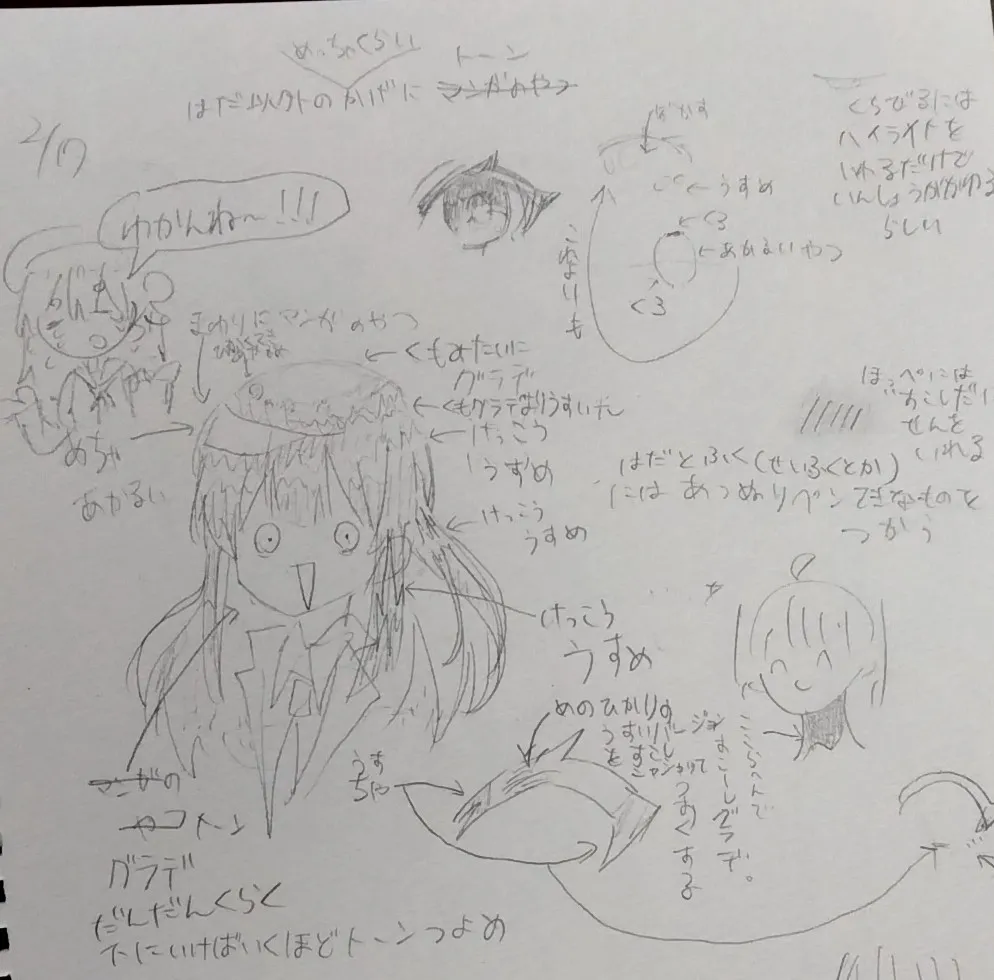 めっちゃくらい
トーン
はだ以外のかげに マンガのやつ
2/17
ゆかんね〜!!!
ぼかす
うすめ
<3
あかるいやつ
<3
これよりも
くちびるには
ハイライトを
いれるだけで
いんしょうがかわる
らしい
まわりにマンガのやつ
くもみたいに
グラデ
くもグラデよりうすいトーン
けっこう
うすめ
めちゃ
あかるい
けっこう
うすめ
ほっぺには
すこしだけ
せんを
いれる
はだとふく(せいふくとか)
にはあつぬりペンてきなものを
つかう
けっこう
うすめ
めのひかりの
うすいバージョン
を すこし
つよくする
ここらへんで
すこーしグラデ。
うす
ちゃ
マンガの
やつ トーン
グラデ
だんだんくらく
下にいけばいくほどトーンつよめ